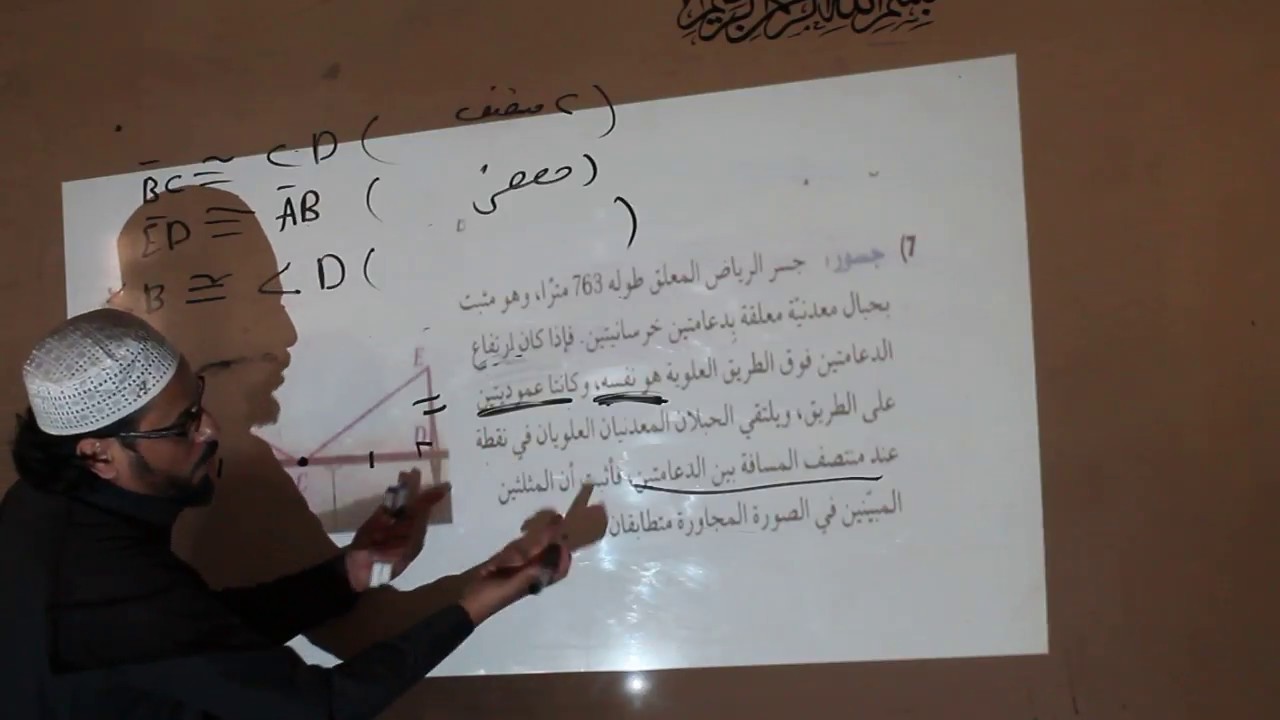 بسم الله الرحمن الرحيم
BC ≅ CD ( C منتصف )
ED ≅ AB ( معطى )
B ≅ <D ( )
7) جسور: جسر الرياض المعلق طوله 763 مترًا، وهو مثبت
بحبال معدنيّة معلقة بِدعامتين خرسانيتين. فإذا كان ارتفاع
الدعامتين فوق الطريق العلوية هو نفسه، وكانتا عموديتين
على الطريق، ويلتقي الحبلان المعدنيان العلويان في نقطة
عند منتصف المسافة بين الدعامتين، فأثبت أن المثلثين
المبيّنين في الصورة المجاورة متطابقان
E
D
C